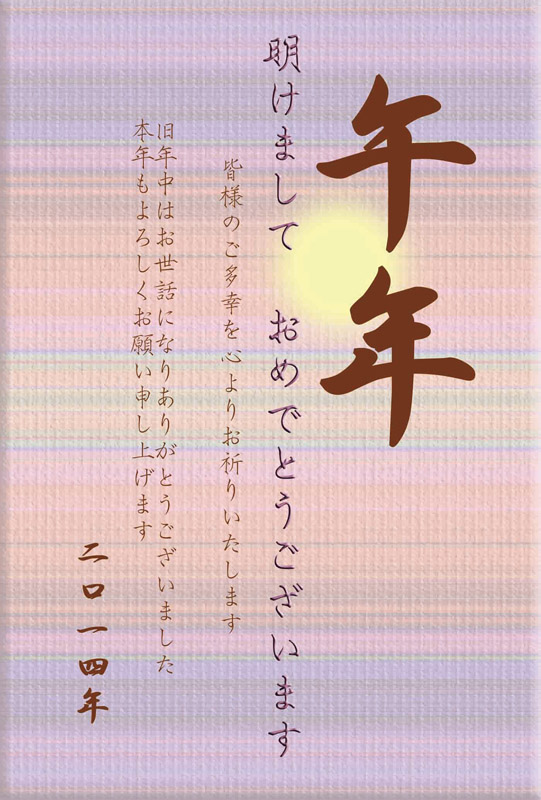 午年
明けまして　おめでとうございます
皆様のご多幸を心よりお祈りいたします
旧年中はお世話になりありがとうございました
本年もよろしくお願い申し上げます
二〇一四年